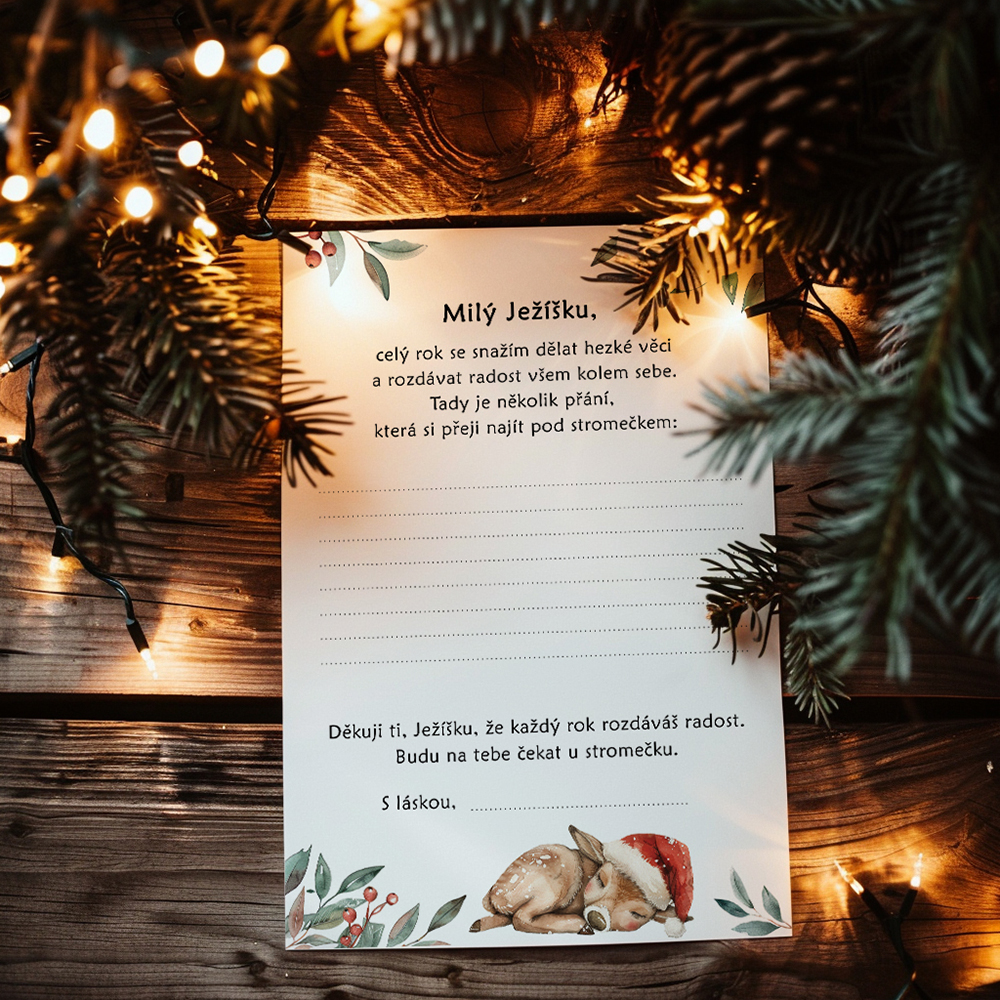 Milý Ježíšku,
celý rok se snažím dělat hezké věci
a rozdávat radost všem kolem sebe.
Tady je několik přání,
která si přeji najít pod stromečkem:
Děkuji ti, Ježíšku, že každý rok rozdáváš radost.
Budu na tebe čekat u stromečku.
S láskou,